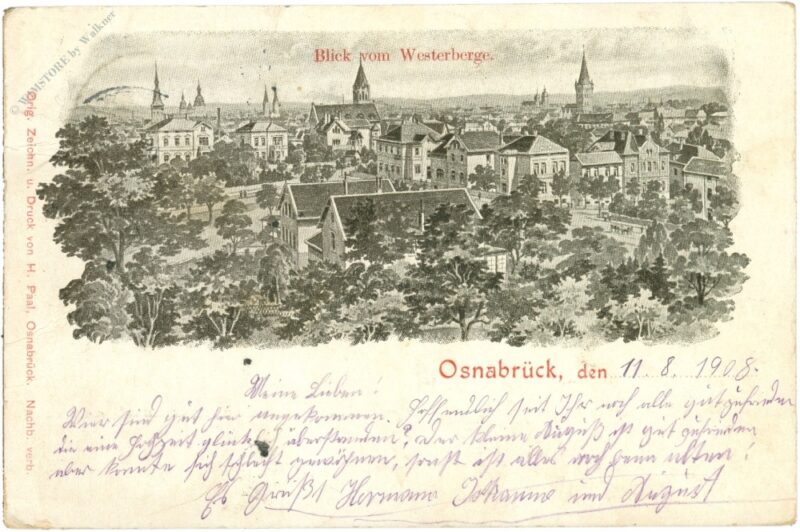 Blick vom Westerberge.
© WOMSTORE by Walkner
Orig. Zeichn. u. Druck von H. Paal, Osnabrück. Nachb. verb.
Osnabrück, den 11. 8. 1908.
Meine Lieben!
Wier sind gut hier angekommen. Hoffendlich seit Ihr noch alle gut zufrieden
die eine Hochzeit glücklich überstanden? Der kleine August ist gut zufrieden
aber konnte sich schlecht gewöhnen, sonst ist alles noch beim alten!
Es Grüßt Hermann Johanne und August